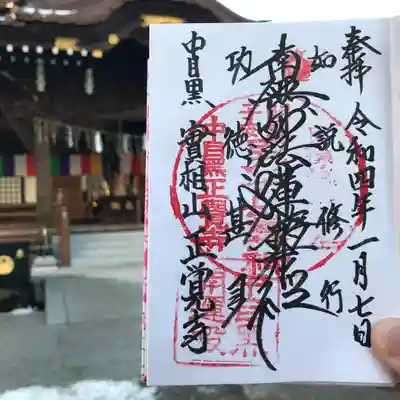 奉拝 令和四年一月七日
如説修行
南無妙法蓮華経
功徳甚多
中目黒 實相山 正覚寺
中目黒正覺寺